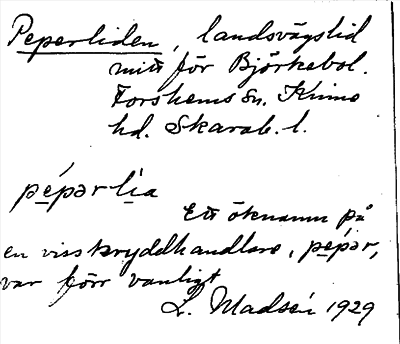 Peperliden, landsvägslid
mitt för Björkebol.
Forshems sn. Kinne
hd. Skarab. l.
pépərlia
Ett öknamn på
en viss kryddhandlare, pépər,
var förr vanligt
L. Madsén 1929